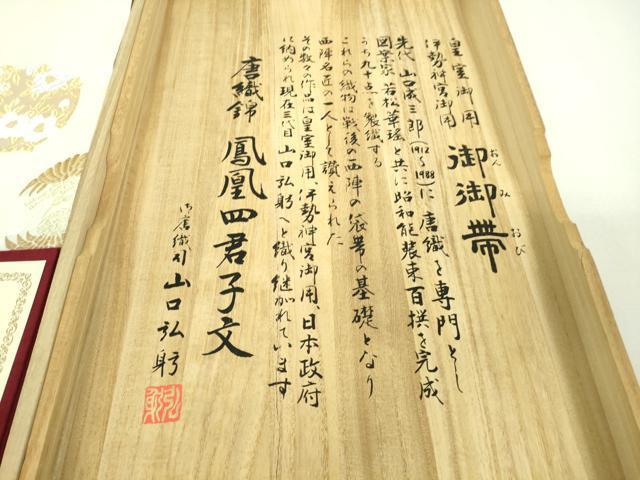 皇室御用
伊勢神宮御用
御御帯
おんみおび
先代 山口成三郎(1912〜1988)に唐織を専門とし
図案家 若松華瑶と共に昭和能装束百撰を完成
うち九十点を製織する
これらの織物は戦後の西陣の袋帯の基礎となり
西陣名匠の一人として讃えられた
その数々の作品は皇室御用、伊勢神宮御用、日本政府
に納められ現在三代目 山口弘躬へと織り継がれています
唐織錦 鳳凰四君子文
御唐織司 山口弘躬